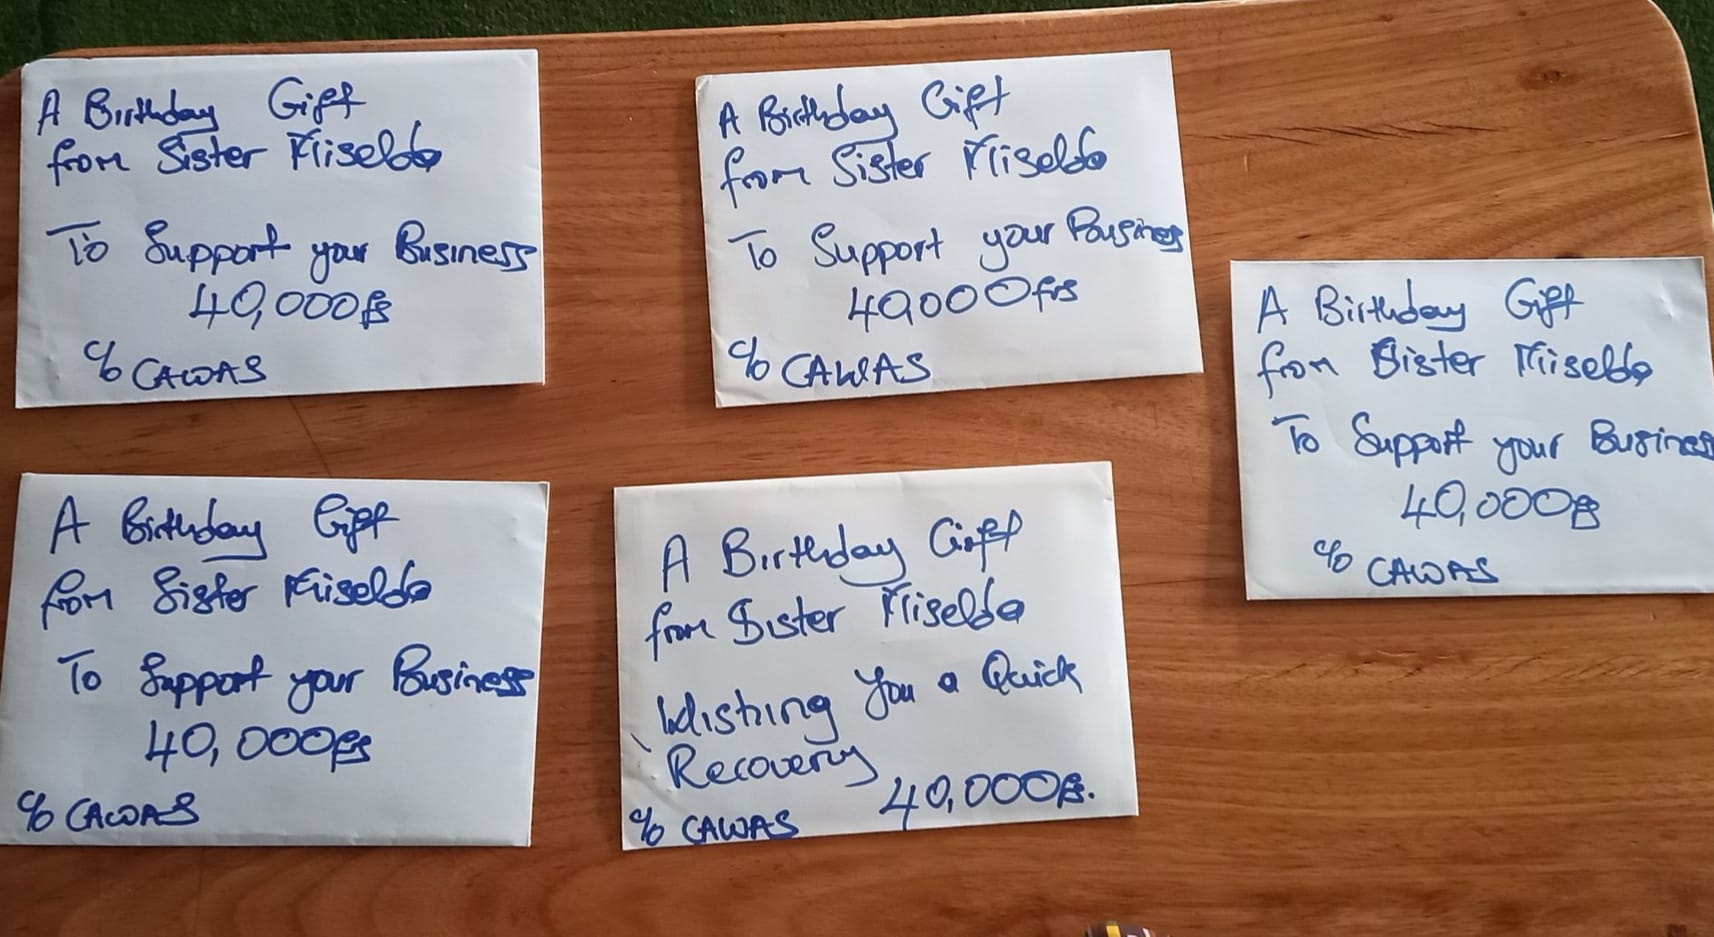 A Birthday Gift
from Sister
To Support your Business
40,000frs
c/o CAWAS
A Birthday Gift
from Sister
To Support your Business
40,000frs
c/o CAWAS
A Birthday Gift
from Sister
To Support your Business
40,000frs
c/o CAWAS
A Birthday Gift
from Sister
To Support your Business
40,000frs
c/o CAWAS
A Birthday Gift
from Sister
Wishing You a Quick
Recovery
40,000frs.
c/o CAWAS